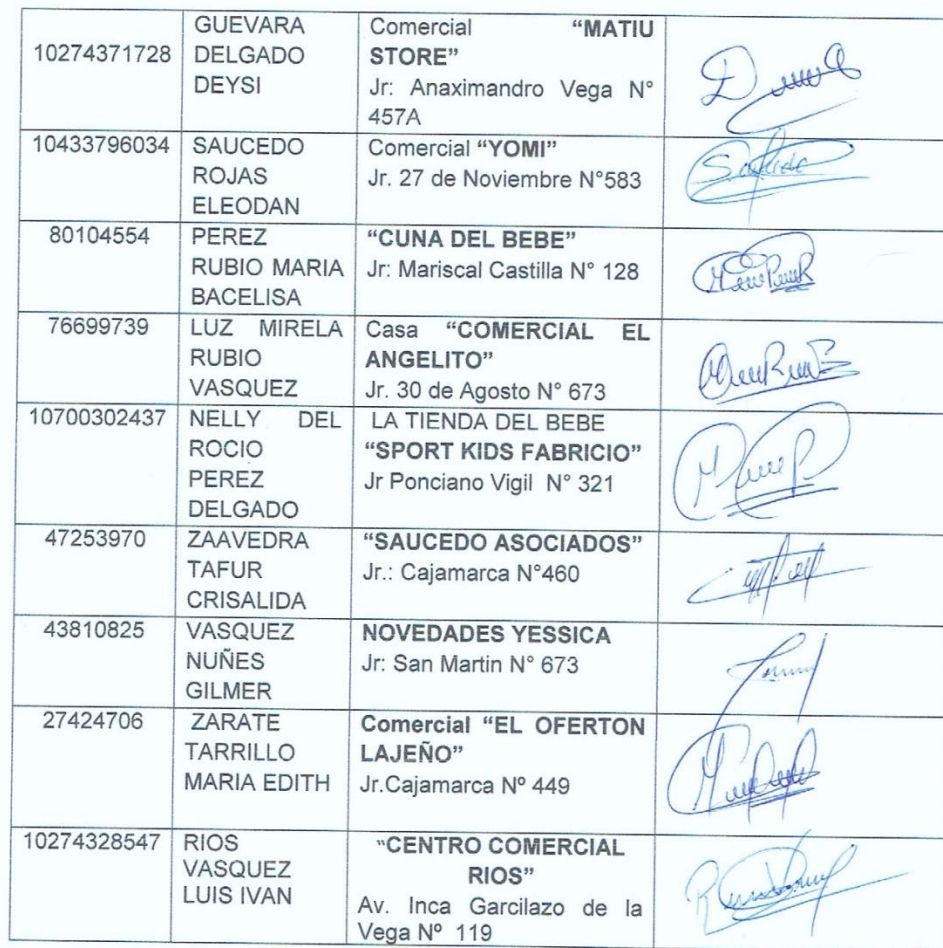 10274371728
GUEVARA
DELGADO
DEYSI
Comercial “MATIU
STORE”
Jr: Anaximandro Vega N°
457A
10433796034
SAUCEDO
ROJAS
ELEODAN
Comercial “YOMI”
Jr. 27 de Noviembre N°583
80104554
PEREZ
RUBIO MARIA
BACELISA
“CUNA DEL BEBE”
Jr: Mariscal Castilla N° 128
76699739
LUZ MIRELA
RUBIO
VASQUEZ
Casa “COMERCIAL EL
ANGELITO”
Jr. 30 de Agosto N° 673
10700302437
NELLY DEL
ROCIO
PEREZ
DELGADO
LA TIENDA DEL BEBE
“SPORT KIDS FABRICIO”
Jr Ponciano Vigil N° 321
47253970
ZAAVEDRA
TAFUR
CRISALIDA
“SAUCEDO ASOCIADOS”
Jr.: Cajamarca N°460
43810825
VASQUEZ
NUÑES
GILMER
NOVEDADES YESSICA
Jr: San Martin N° 673
27424706
ZARATE
TARRILLO
MARIA EDITH
Comercial “EL OFERTON
LAJEÑO”
Jr.Cajamarca Nº 449
10274328547
RIOS
VASQUEZ
LUIS IVAN
“CENTRO COMERCIAL
RIOS”
Av. Inca Garcilazo de la
Vega Nº 119